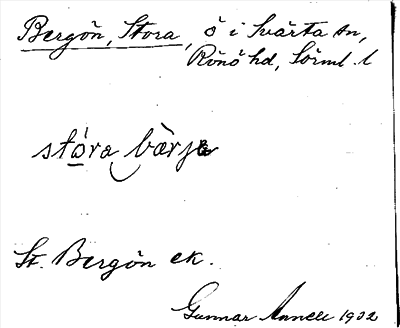 Bergön, Stora, ö i Svärta sn,
Rönö hd, Sörml. l
stóra bærjɐ
St. Bergön ek.
Gunnar Annell 1932